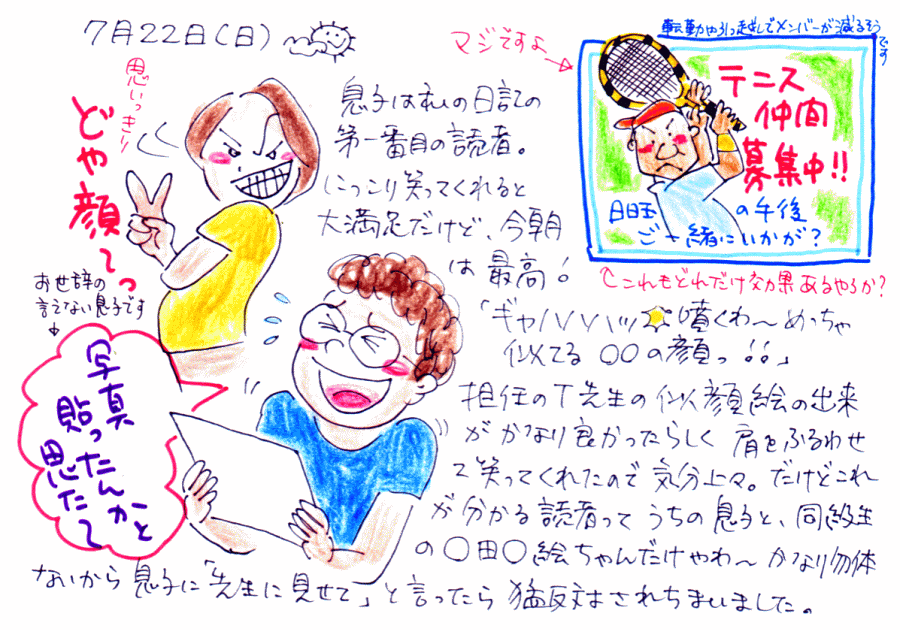 7月22日(日)
思いっきり
どや顔てっ
おせ辞の
言えない息子です
写真
貼ったんかと
思たて
マジですよ
転勤や引っ越しでメンバーが減るそう
です
テニス
仲間
募集中!!
日曜の午後
ご一緒にいかが?
これもどれだけ効果あるやろか?
息子は私の日記の
第一番目の読者。
にっこり笑ってくれると
大満足だけど、今朝
は最高!
「ギャハハハハッ 噴くわ〜めっちゃ
似てる 〇〇の顔っ!!」
担任のT先生の似顔絵の出来
がかなり良かったらしく 肩をふるわせ
て笑ってくれたので気分上々。だけどこれ
が分かる読者って うちの息子と、同級生
の〇田〇絵ちゃんだけやわ〜 かなり勿体
ないから息子に「先生に見せて」と言ったら 猛反対されちまいました。